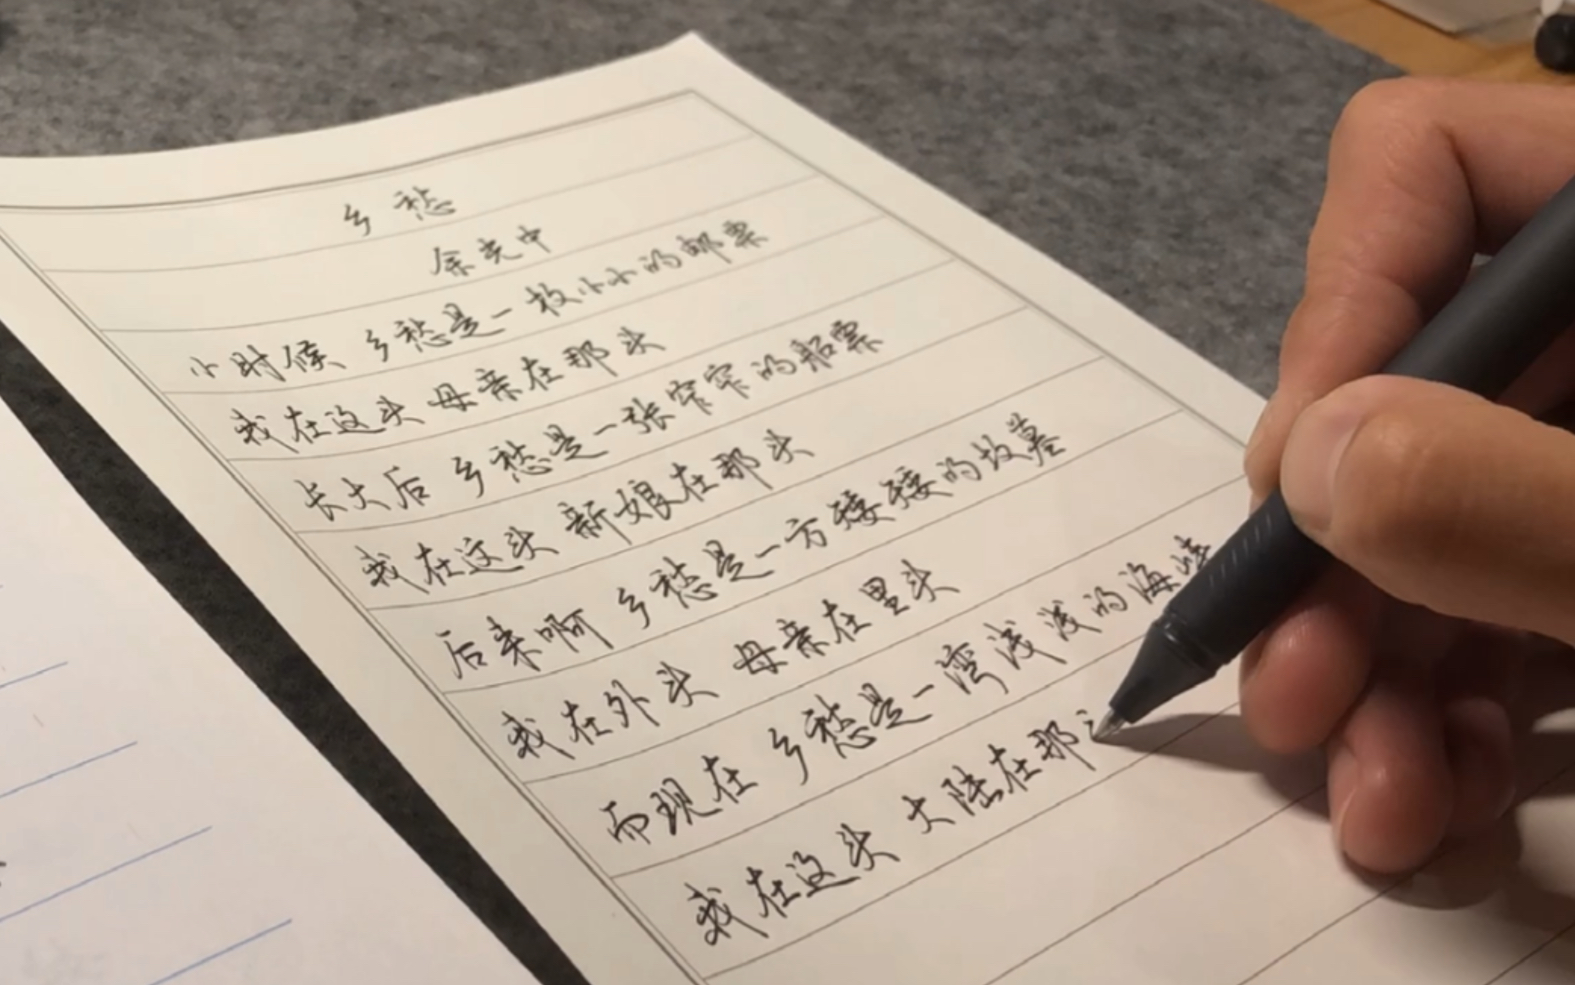 乡愁
余光中
小时候、乡愁是一枚小小的邮票
我在这头 母亲在那头
长大后 乡愁是一张窄窄的船票
我在这头 新娘在那头
后来啊 乡愁是一方矮矮的坟墓
我在外头 母亲在里头
而现在 乡愁是一湾浅浅的海峡
我在这头 大陆在那